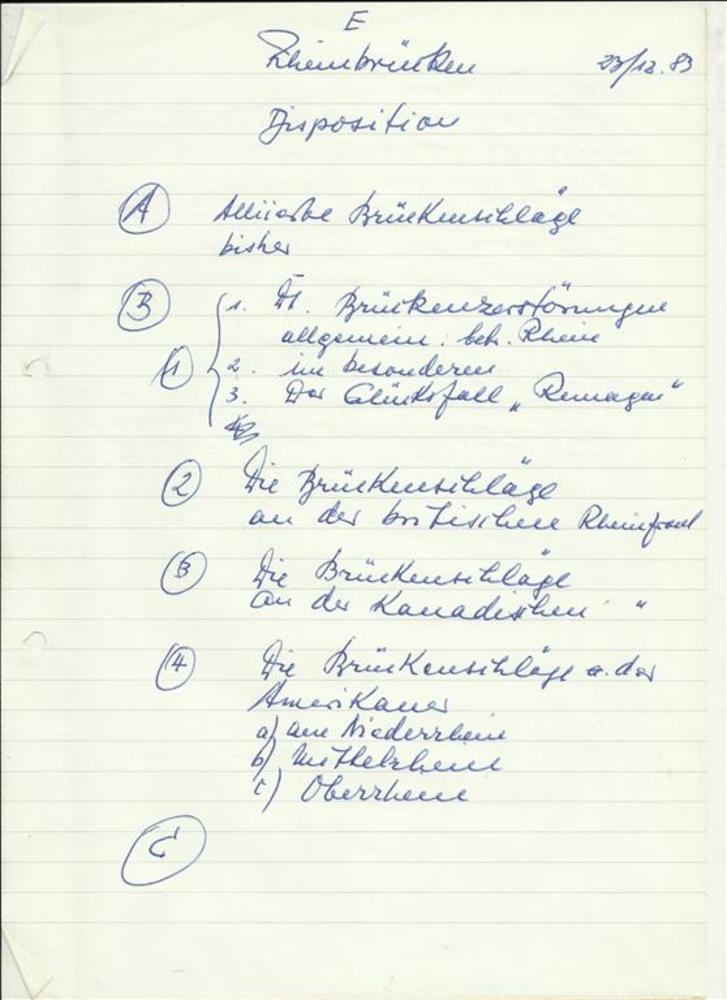 E
Rheinbrücken 23/12.83
Disposition
A Alliierte Brückenschläge
bisher
B 1. Dt. Brückenzerstörungen
allgemein: betr. Rhein
1 2. im besonderen
3. Der Glücksfall „Remagen“
2 Die Brückenschläge
an der britischen Rheinfront
3 Die Brückenschläge
an der Kanadischen "
4 Die Brückenschläge der
Amerikaner
a) am Niederrhein
b) Mittelrhein
c) Oberrhein
C